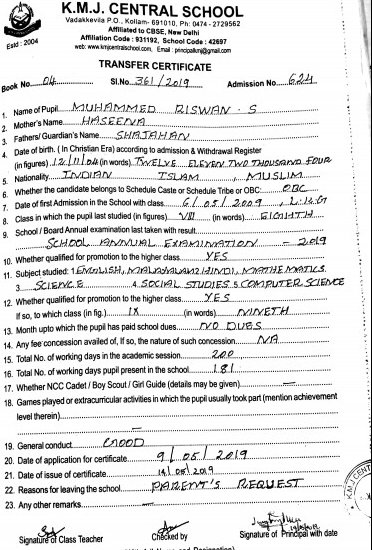 K.M.J. CENTRAL SCHOOL
Vadakkevila P.O., Kollam- 691010, Ph: 0474 - 2729562
Affiliated to CBSE, New Delhi
Affiliation Code : 931192, School Code : 42697
Estd : 2004
www.kmjcentralschool.com, Email : principalkmj@gmail.com
TRANSFER CERTIFICATE
Book No. 04 Sl.No. 361/2019 Admission No. 624
1. Name of Pupil MUHAMMED RISWAN . S
2. Mother's Name HASEENA
3. Fathers/ Guardian's Name SHAJAHAN
4. Date of birth. ( In Christian Era) according to admission & Withdrawal Register
(in figures) 12/11/04 (in words) TWELVE ELEVEN TWO THOUSAND FOUR
5. Nationality INDIAN ISLAM, MUSLIM
6. Whether the candidate belongs to Schedule Caste or Schedule Tribe or OBC: OBC
7. Date of first Admission in the School with class 6/05/2009, L.K.G
8. Class in which the pupil last studied (in figures) VIII (in words) EIGHTH
9. School / Board Annual examination last taken with result
SCHOOL ANNUAL EXAMINATION - 2019
10. Whether qualified for promotion to the higher class YES
11. Subject studied: 1 ENGLISH, MALAYALAM 2 HINDI, MATHEMATICS
3. SCIENCE 4. SOCIAL STUDIES 5 COMPUTER SCIENCE
12. Whether qualified for promotion to the higher class YES
If so, to which class (in fig.) IX (in words) NINETH
13. Month upto which the pupil has paid school dues NO DUES
14. Any fee concession availed of, If so, the nature of such concession NA
15. Total No. of working days in the academic session 200
16. Total No. of working days pupil present in the school 181
17. Whether NCC Cadet / Boy Scout / Girl Guide (details may be given) —
18. Games played or extracurricular activities in which the pupil usually took part (mention achievement
level therein) —
19. General conduct GOOD
20. Date of application for certificate 9/05/2019
21. Date of issue of certificate 14/05/2019
22. Reasons for leaving the school PARENT'S REQUEST
23. Any other remarks —
Signature of Class Teacher Checked by Signature of Principal with date
K.M.J. CENTR